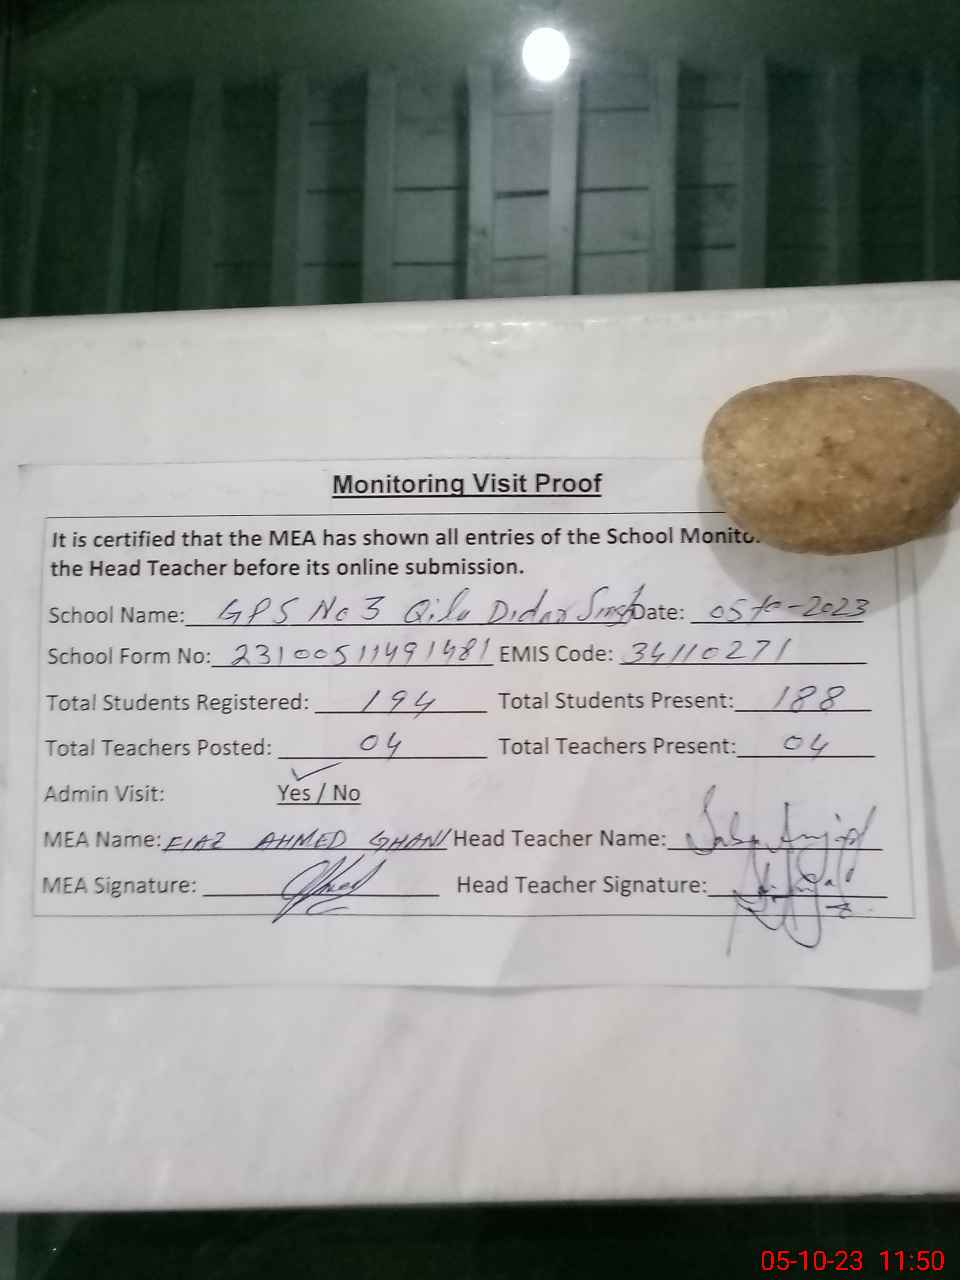 Monitoring Visit Proof
It is certified that the MEA has shown all entries of the School Monito
the Head Teacher before its online submission.
School Name: GPS No 3 Qila Didar Singh Date: 05-10-2023
School Form No: 23100511491481 EMIS Code: 34110271
Total Students Registered: 194 Total Students Present: 188
Total Teachers Posted: 04 Total Teachers Present: 04
Admin Visit: Yes / No
MEA Name: FIAZ AHMED GHANI Head Teacher Name:
MEA Signature: Head Teacher Signature:
05-10-23 11:50